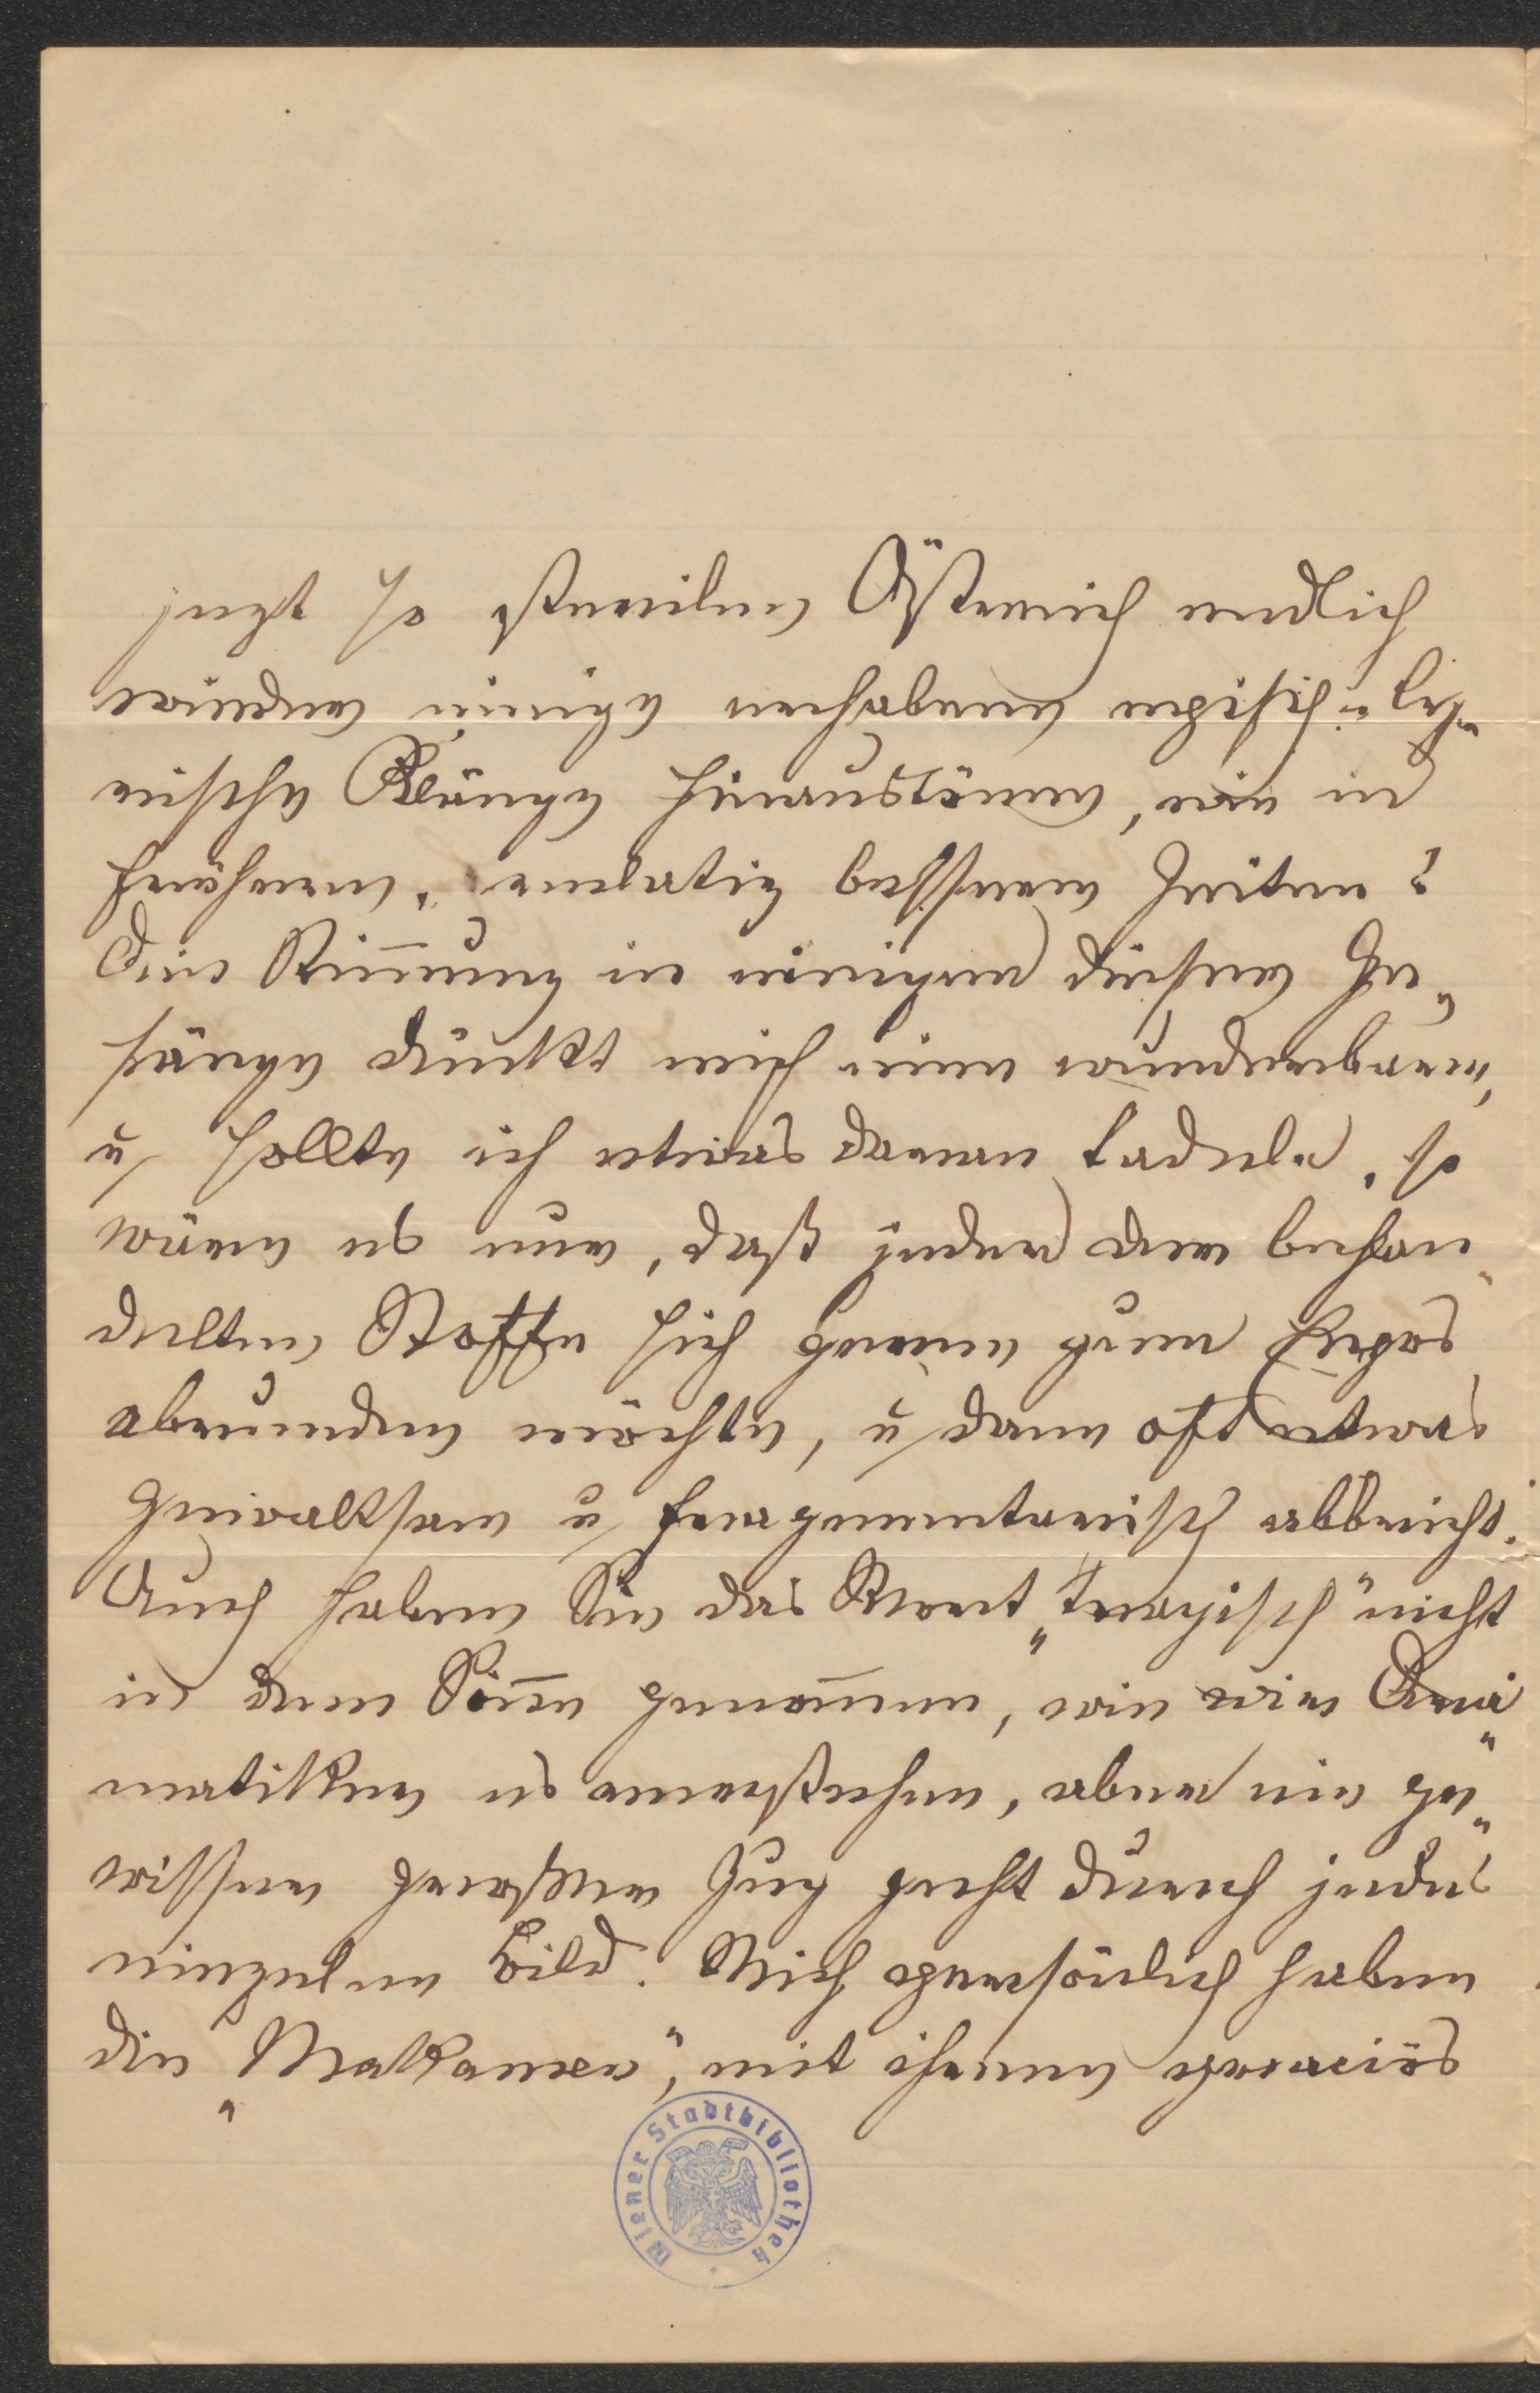 jezt so sterilen Österreich endlich
wieder einige erhabene episch-ly-
rische Klänge hinaustönen, wie in
früheren, relativ besseren Zeiten?
Die Stim̅ung in einigen dieser Ge-
sänge dünkt mich eine wunderbare,
u sollte ich etwas daran tadeln, so
wäre es nur, daß jeder der behan-
delten Stoffe sich gerne zum Epos
abrunden möchte, u dann oft etwas
gewaltsam u fragmentarisch abbricht.
Auch haben Sie das Wort „tragisch" nicht
in dem Sin̅e genom̅en, wie wir Dra-
matiker es verstehen, aber ein ge-
wisser großer Zug geht durch jedes
einzelne Bild. Mich persönlich haben
die „Makamen", mit ihrem graciös
Wiener Stadtbibliothek